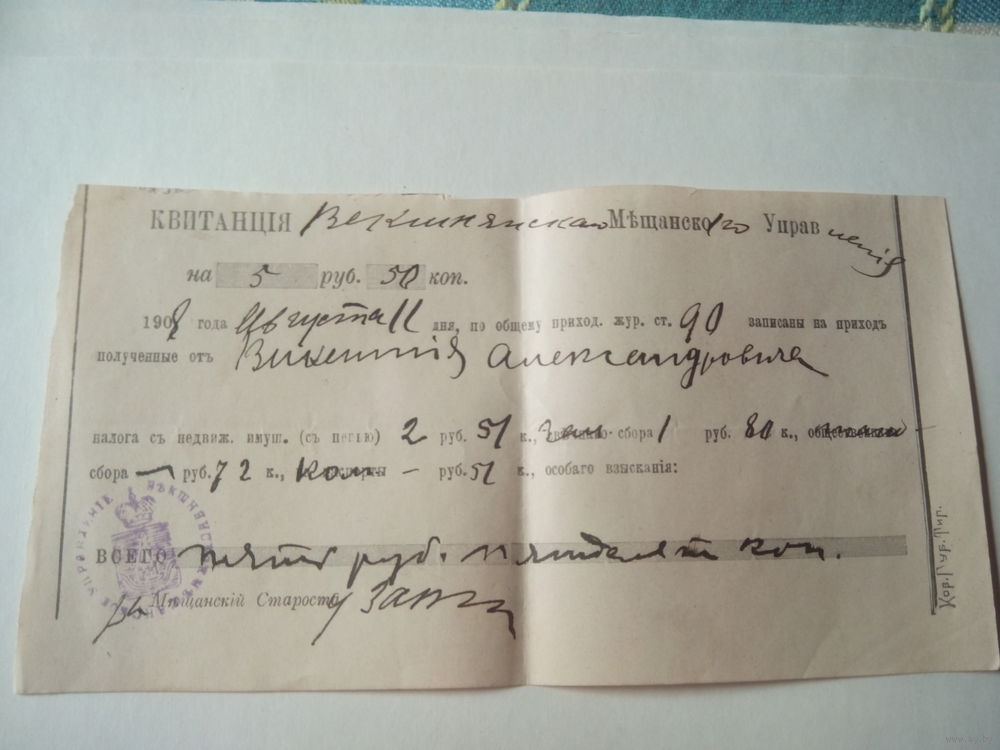 КВИТАНЦІЯ Векшнянскаго Мѣщанскаго Управленія
на 5 руб. 50 коп.
1908 года Августа 11 дня, по общему приход. жур. ст. 90 записаны на приходъ
полученные отъ Викентія Александровича
налога съ недвиж. имущ. (съ пенію) 2 руб. 51 к., сбора 1 руб. к.,
сбора — руб. 72 к., — руб. 51 к., особаго взысканія:
ВСЕГО пять руб. пятьдесятъ коп.
Мѣщанскій Староста
Кор. Гур. Тир.